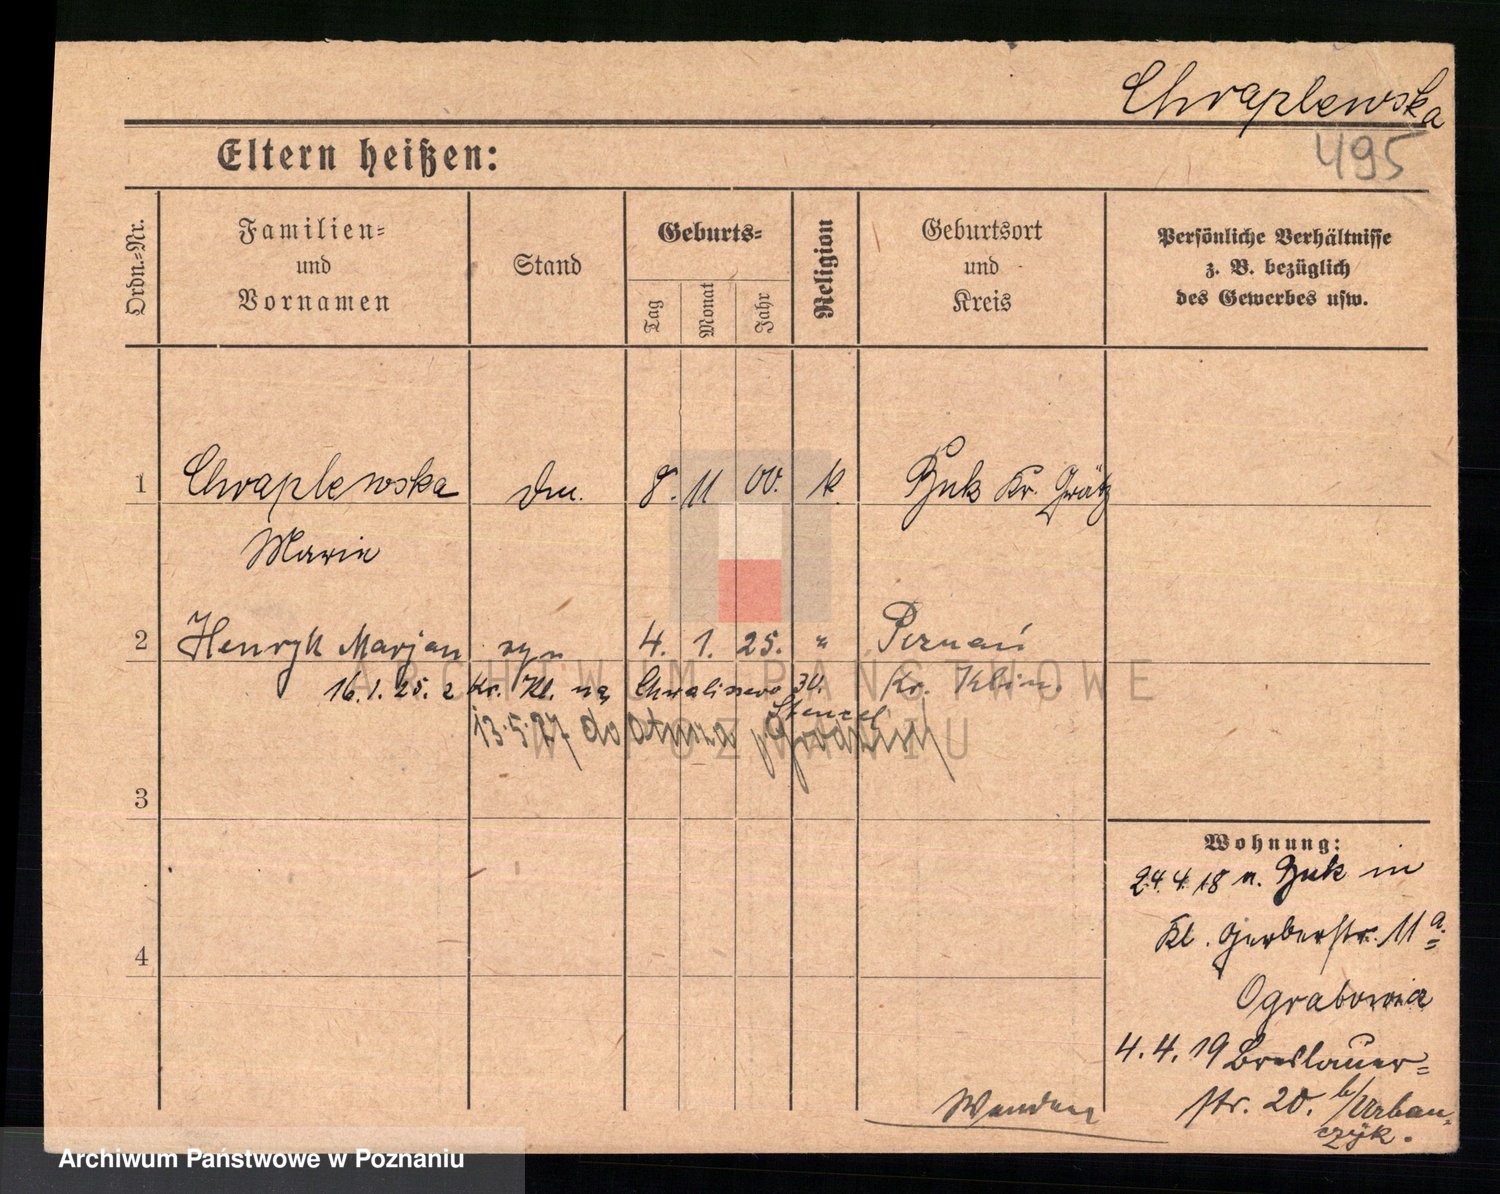 Chraplewska
495
Eltern heißen:
Ordn.=Nr.
Familien=
und
Vornamen
Stand
Geburts=
Tag
Monat
Jahr
Religion
Geburtsort
und
Kreis
Persönliche Verhältnisse
z. B. bezüglich
des Gewerbes usw.
1 Chraplewska 8. 11 00. k Buk Kr. Grätz
Marie
2 Henryk Marjan syn 4. 1. 25. " Poznań
16.1.25. z Kr. Kl. na Chwaliszewo 30.
Stenzel
13.5.27 do
3
4
Wohnung:
24.4.18 v. Buk in
Kl. Gerberstr. 11a.
Ograbowia
4.4.19 Breslauer=
str. 20. b/Urban=
czyk.
Wenden
ARCHIWUM PAŃSTWOWE
W POZNANIU
Archiwum Państwowe w Poznaniu